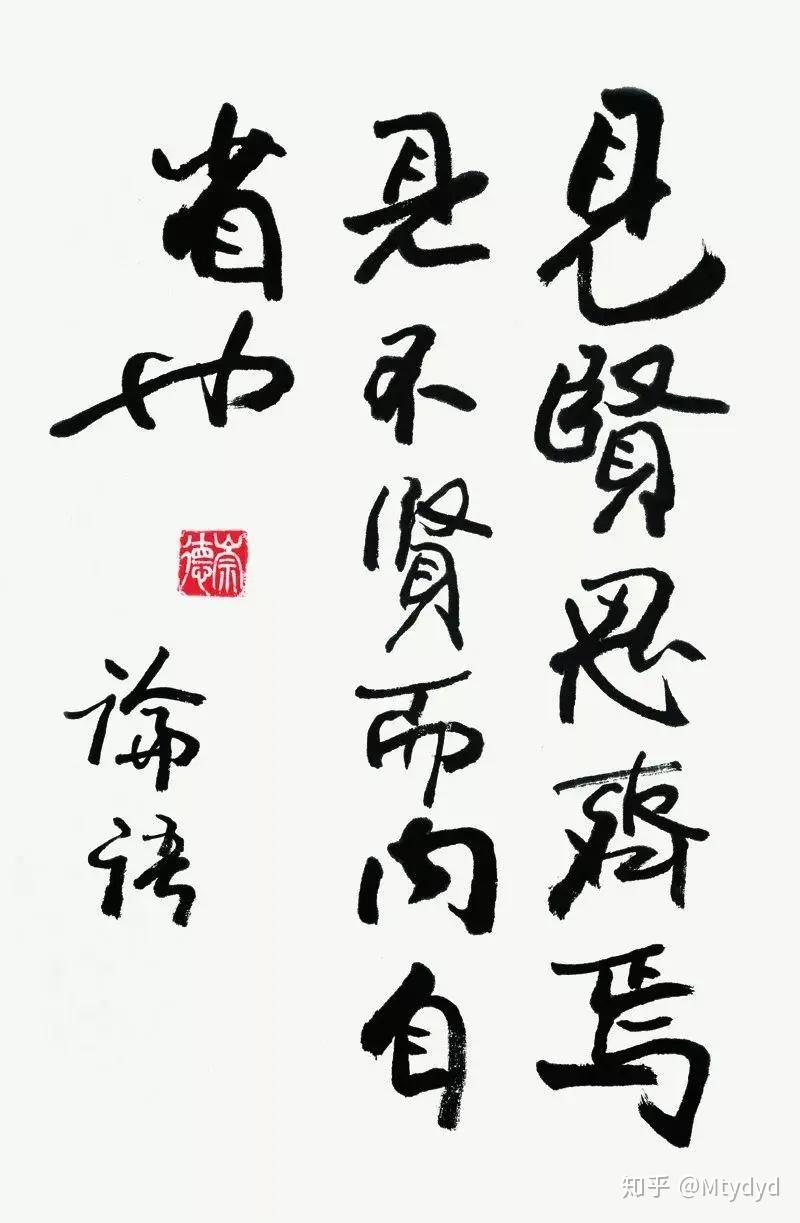 見賢思齊焉
見不賢而內自
省也
崇德
論語
知乎 @Mtydyd